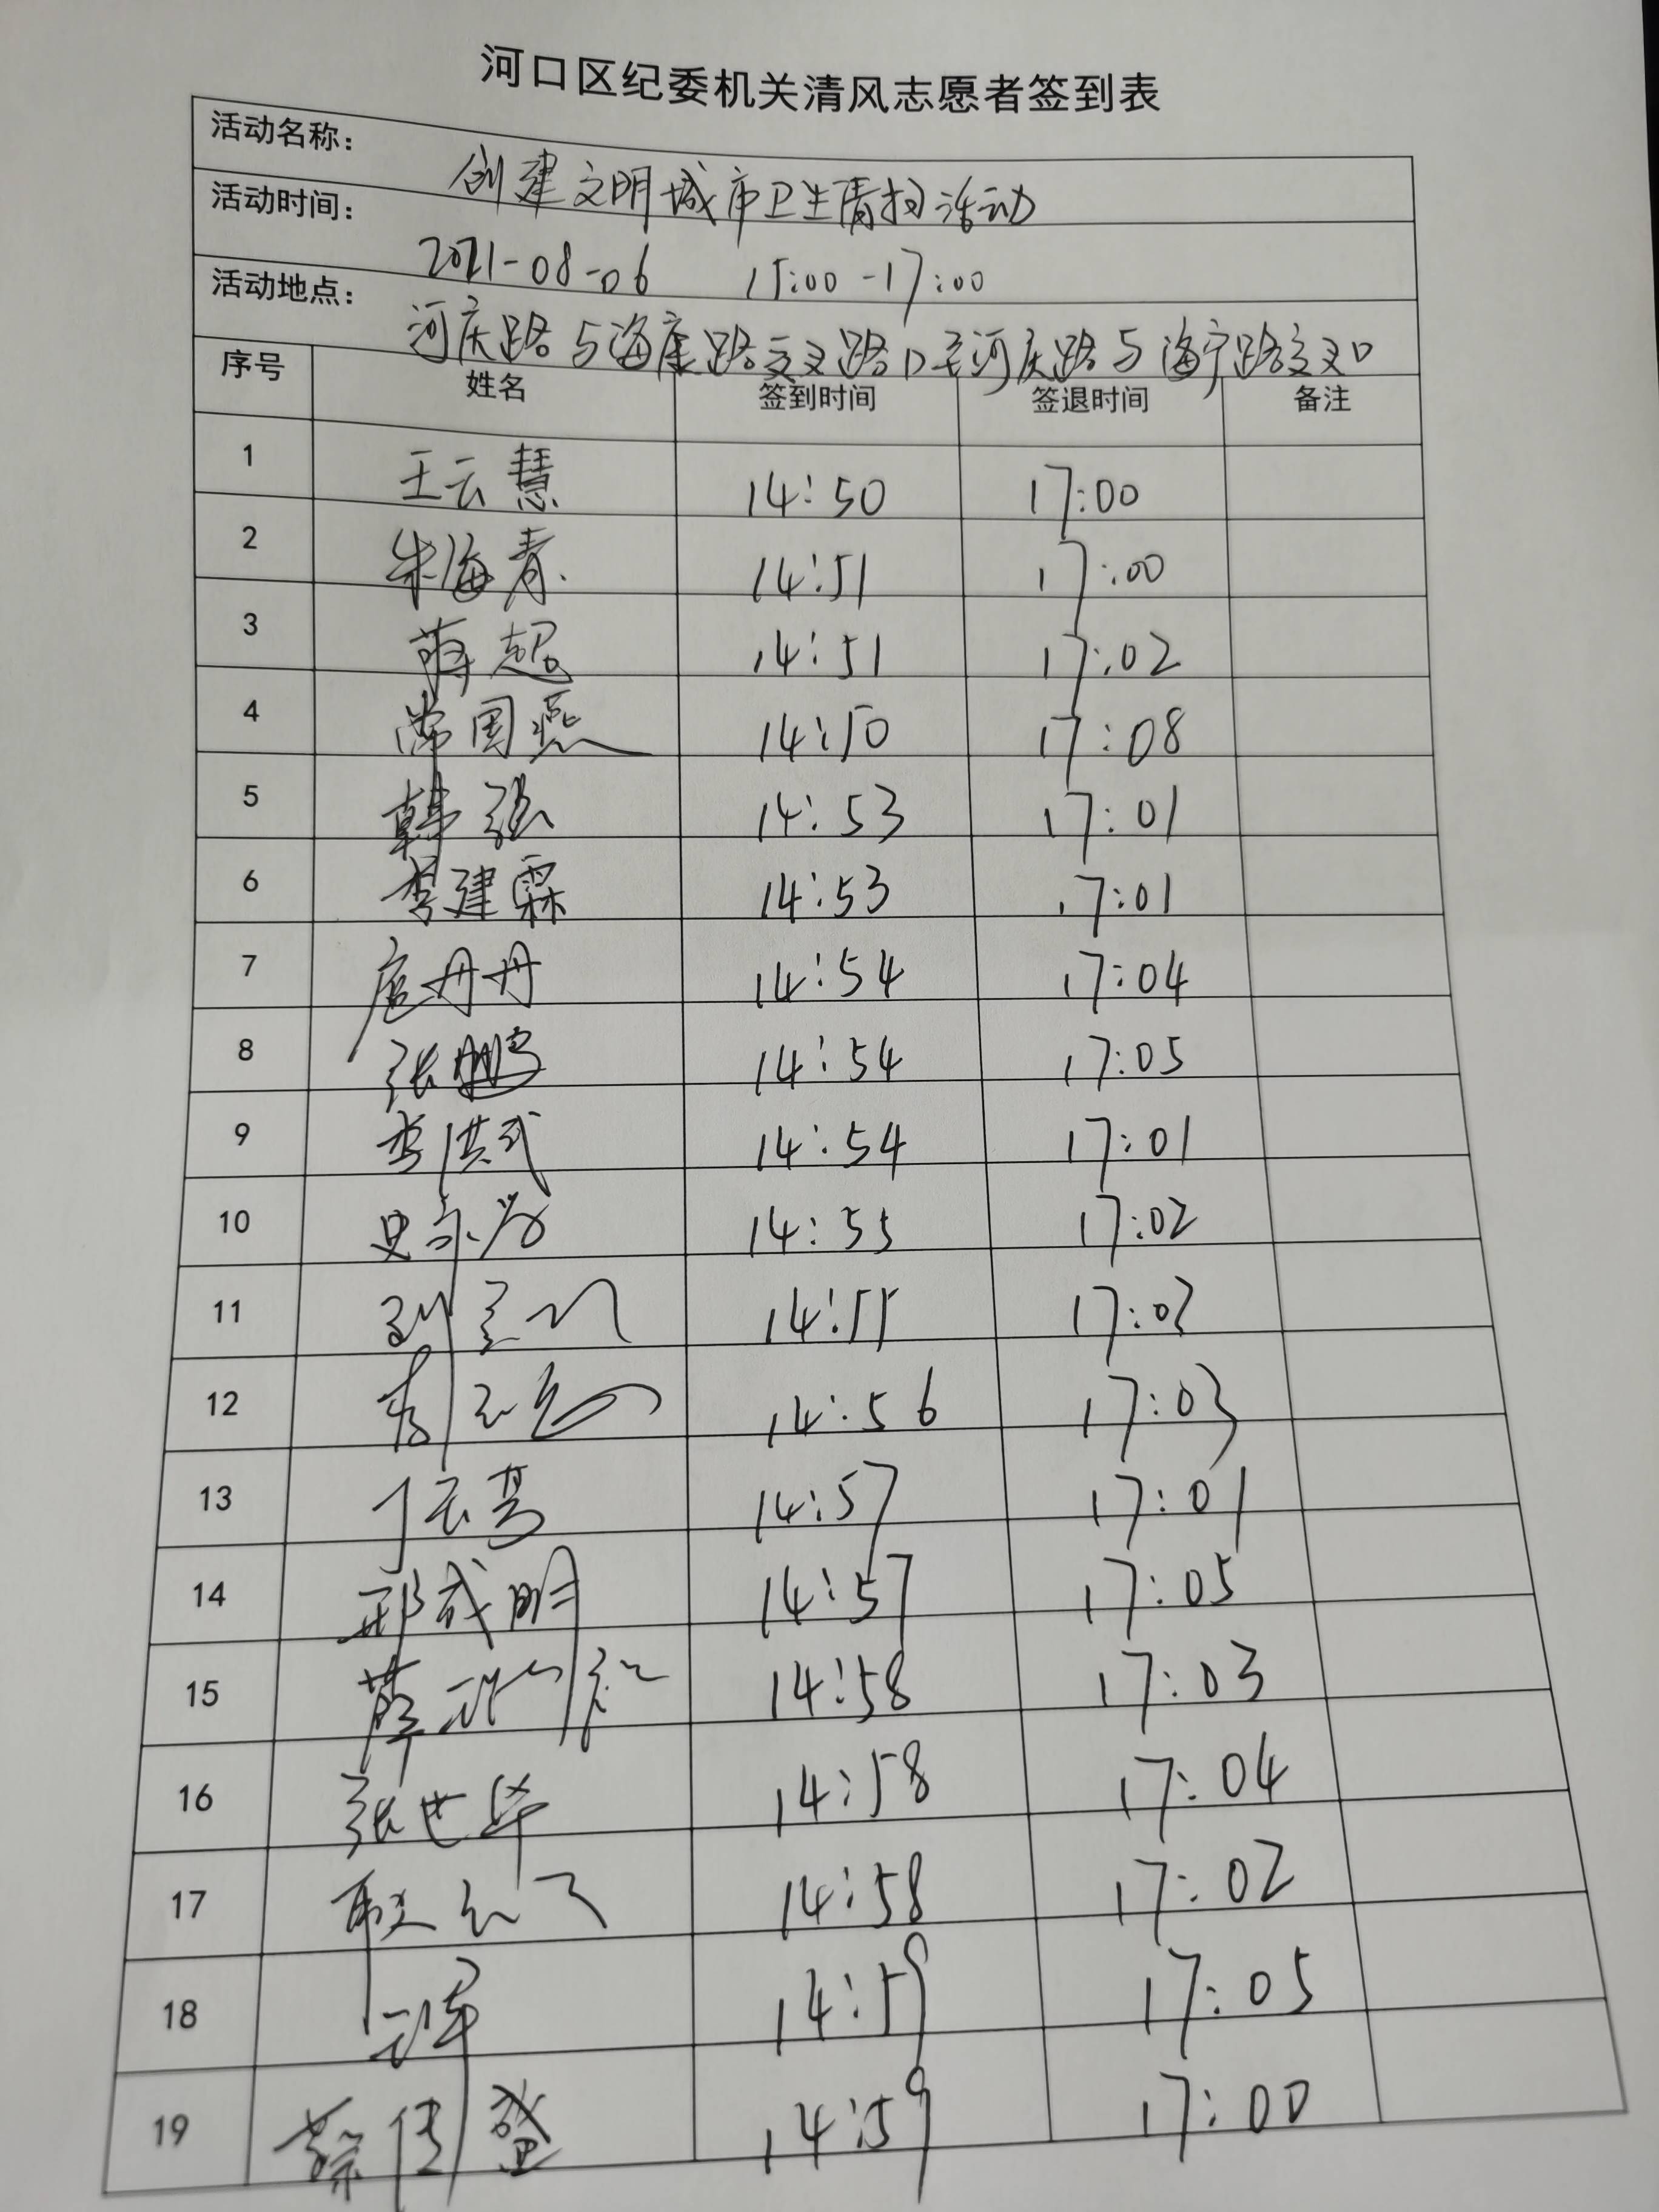 河口区纪委机关清风志愿者签到表
活动名称: 创建文明城市卫生清扫活动
活动时间: 2021-08-06 15:00-17:00
活动地点: 河庆路与海康路交叉路口至河庆路与海宁路交叉口
序号 姓名 签到时间 签退时间 备注
1 王云慧 14:50 17:00
2 朱海青 14:51 17:00
3 蒋超 14:51 17:02
4 常国燕 14:50 17:08
5 韩强 14:53 17:01
6 李建霖 14:53 17:01
7 扈丹丹 14:54 17:04
8 张鹏 14:54 17:05
9 李洪武 14:54 17:01
10 14:55 17:02
11 14:55 17:03
12 14:56 17:03
13 14:57 17:01
14 邢成明 14:57 17:05
15 14:58 17:03
16 张世华 14:58 17:04
17 14:58 17:02
18 14:59 17:05
19 14:59 17:00